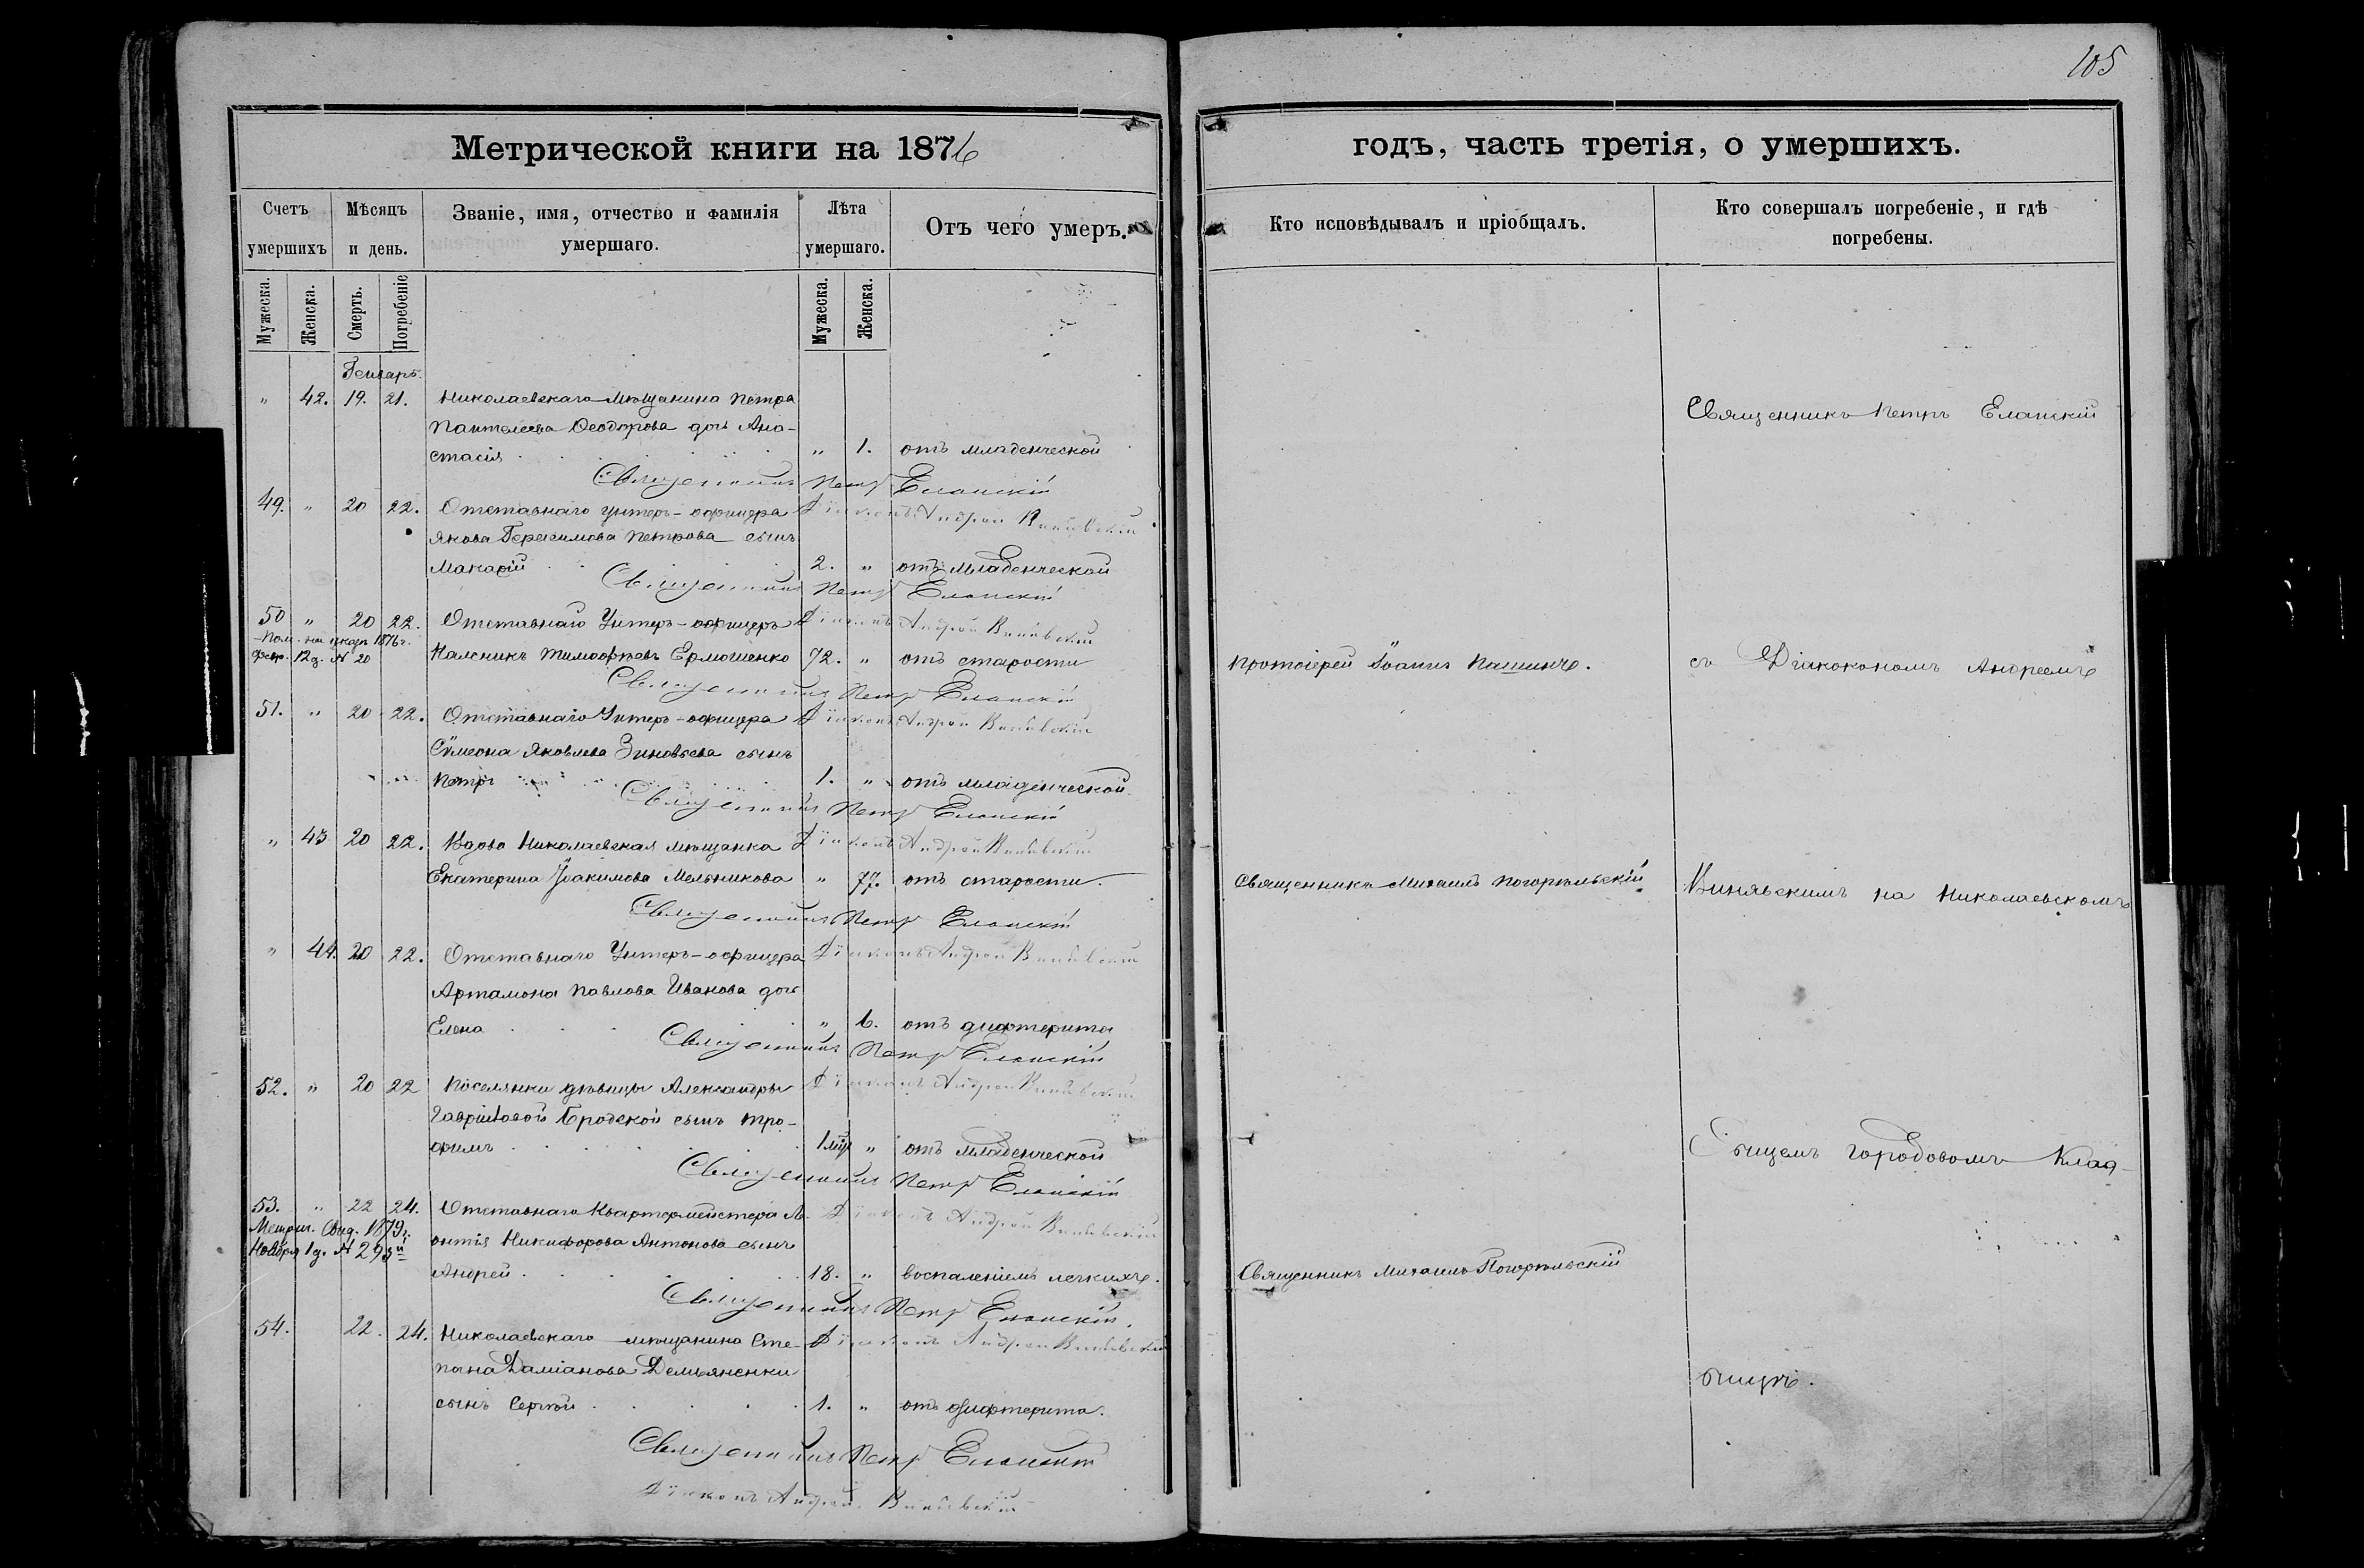 105
Метрической книги на 1876
годъ, часть третія, о умершихъ.
Счетъ умершихъ
Мѣсяцъ и день.
Званіе, имя, отчество и фамилія умершаго.
Лѣта умершаго.
Отъ чего умеръ.
Кто исповѣдывалъ и пріобщалъ.
Кто совершалъ погребеніе, и гдѣ погребены.
Мужеска.
Женска.
Смерть.
Погребеніе
Мужеска.
Женска.
Генварь.
" 42. 19. 21. Николаевскаго мѣщанина Петра
Пантелеева Ѳеодорова дочь Ана-
стасія " 1. отъ младенческой
Священникъ Петръ Еланскій
49. " 20 22. Отставнаго унтеръ-офицера
Діаконъ Андрей
Якова Герасимова Петрова сынъ
Макарій 2. " отъ младенческой
Священникъ Петръ Еланскій
50 " 20 22. Отставнаго Унтеръ-офицеръ
Діаконъ Андрей
1876 г.
Февр. 12 д. № 20
Тимофѣевъ Ермошенко 72. " отъ старости
Священникъ Петръ Еланскій
51. " 20 22. Отставнаго Унтеръ-офицера
Діаконъ Андрей
Сѵмеона Яковлева Зиновьева сынъ
Петръ 1. " отъ младенческой
Священникъ Петръ Еланскій
" 43 20 22. Вдова Николаевская мѣщанка
Діаконъ Андрей
Екатерина Іоакимова Мельникова " 77. отъ старости.
Священникъ Петръ Еланскій
" 44. 20 22. Отставнаго Унтеръ-офицера
Діаконъ Андрей
Артамона Павлова Иванова дочь
Елена " 6. отъ дифтерита
Священникъ Петръ Еланскій
52. " 20 22 Поселянки дѣвицы Александры
Діаконъ Андрей
Гавріиловой Бродской сынъ Тро-
фимъ 1 мѣ " отъ младенческой
Священникъ Петръ Еланскій
53. " 22 24. Отставнаго Квартермейстера Ле-
Діаконъ Андрей
Метрич. Свид. 1879 г.
Ноября 1 д. №
онтія Никифорова Антонова сынъ
Андрей 18. " воспаленіемъ легкихъ.
Священникъ Петръ Еланскій.
54. 22. 24. Николаевскаго мѣщанина Сте-
Діаконъ Андрей
пана Даміанова Демьяненки
сынъ Сергѣй 1. " отъ дифтерита.
Священникъ Петръ Еланскій
Діаконъ Андрей
Протоіерей Іоаннъ
Священникъ Михаилъ Погорѣльскій
Священникъ Михаилъ Погорѣльскій
Священникъ Петръ Еланскій
съ Діакокономъ Андреемъ
Винявскимъ на Николаевскомъ
общемъ городовомъ клад-
бищѣ.